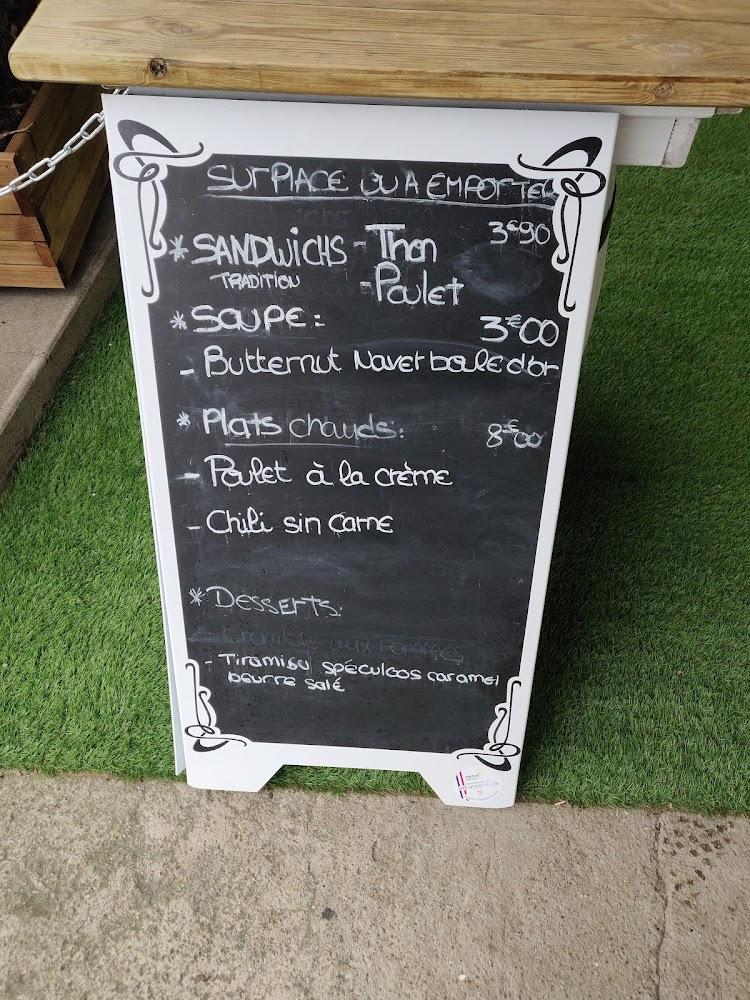 SUR PLACE OU A EMPORTER
* SANDWICHS - Thon 3€90
TRADITION - Poulet
* SOUPE : 3€00
- Butternut Navet boule d'or
* Plats chauds : 8€00
- Poulet à la crème
- Chili sin carne
* DESSERTS.
- Crumble aux Pommes
- Tiramisu spéculoos caramel
beurre salé